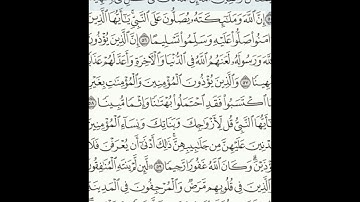 إِنَّ ٱللَّهَ وَمَلَٰٓئِكَتَهُۥ يُصَلُّونَ عَلَى ٱلنَّبِيِّۚ يَٰٓأَيُّهَا ٱلَّذِينَ
ءَامَنُواْ صَلُّواْ عَلَيۡهِ وَسَلِّمُواْ تَسۡلِيمًا ٥٦ إِنَّ ٱلَّذِينَ يُؤۡذُونَ
ٱللَّهَ وَرَسُولَهُۥ لَعَنَهُمُ ٱللَّهُ فِي ٱلدُّنۡيَا وَٱلۡأٓخِرَةِ وَأَعَدَّ لَهُمۡ
مُّهِينٗا ٥٧ وَٱلَّذِينَ يُؤۡذُونَ ٱلۡمُؤۡمِنِينَ وَٱلۡمُؤۡمِنَٰتِ بِغَيۡرِ
مَا ٱكۡتَسَبُواْ فَقَدِ ٱحۡتَمَلُواْ بُهۡتَٰنٗا وَإِثۡمٗا مُّبِينٗا ٥٨
يَٰٓأَيُّهَا ٱلنَّبِيُّ قُل لِّأَزۡوَٰجِكَ وَبَنَاتِكَ وَنِسَآءِ ٱلۡمُؤۡمِنِينَ
يُدۡنِينَ عَلَيۡهِنَّ مِن جَلَٰبِيبِهِنَّۚ ذَٰلِكَ أَدۡنَىٰٓ أَن يُعۡرَفۡنَ فَلَا
يُؤۡذَيۡنَۗ وَكَانَ ٱللَّهُ غَفُورٗا رَّحِيمٗا ٥٩ لَّئِن لَّمۡ يَنتَهِ ٱلۡمُنَٰفِقُونَ
وَٱلَّذِينَ فِي قُلُوبِهِم مَّرَضٞ وَٱلۡمُرۡجِفُونَ فِي ٱلۡمَدِينَةِ